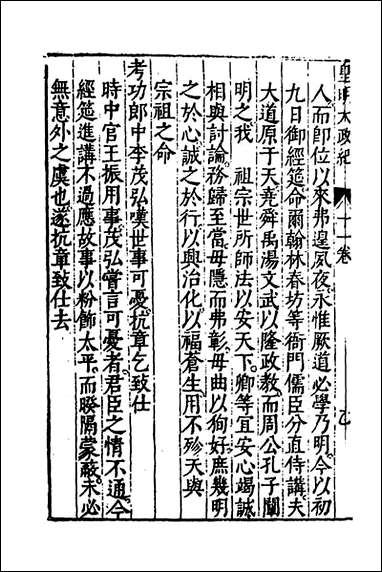 皇明大政紀 十一卷 乙
人而卽位以來弗遑夙夜永惟厥道必學乃明今以初
九日御經筵命爾翰林春坊等衙門儒臣分直侍講夫
大道原于天堯舜禹湯文武以隆政教而周公孔子闡
明之我 祖宗世所師法以安天下卿等宜安心竭誠
相與討論務歸至當毋隱而弗彰毋曲以狥好庶幾明
之於心誠之於行以興治化以福蒼生用不殄天與
宗祖之命
考功郎中李茂弘嘆世事可憂抗章乞致仕
時中官王振用事茂弘嘗言可憂者君臣之情不通今
經筵進講不過應故事以粉飾太平而暌隔蒙蔽未必
無意外之虞也遂抗章致仕去